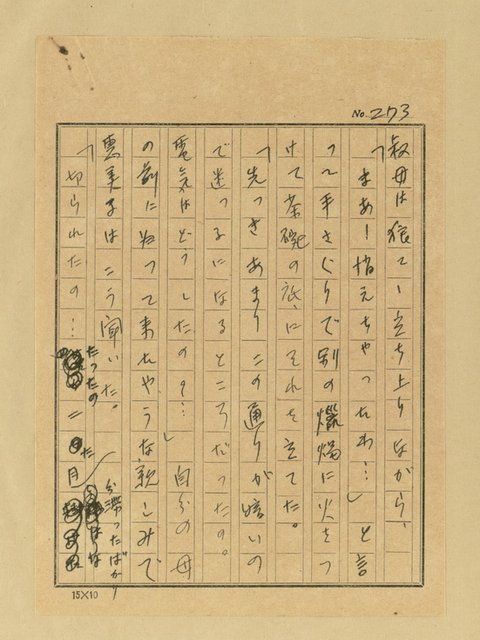 No. 273
叔母は狼てゝ立ち上りながら、
「まあ！消えちゃったわ…」と言
つて手さぐりで別の蠟燭に火をつ
けて茶碗の底にそれを立てた。
「先つきあまりこの通りが暗いの
で迷つるになるところだつたの。
電気はどうしたの？…」自分の母
の前に坐つて来れやうな親しみで
恵美子はこう聞いた。
「切られたの…たつたの二た月
分滞つたばかり
15×10